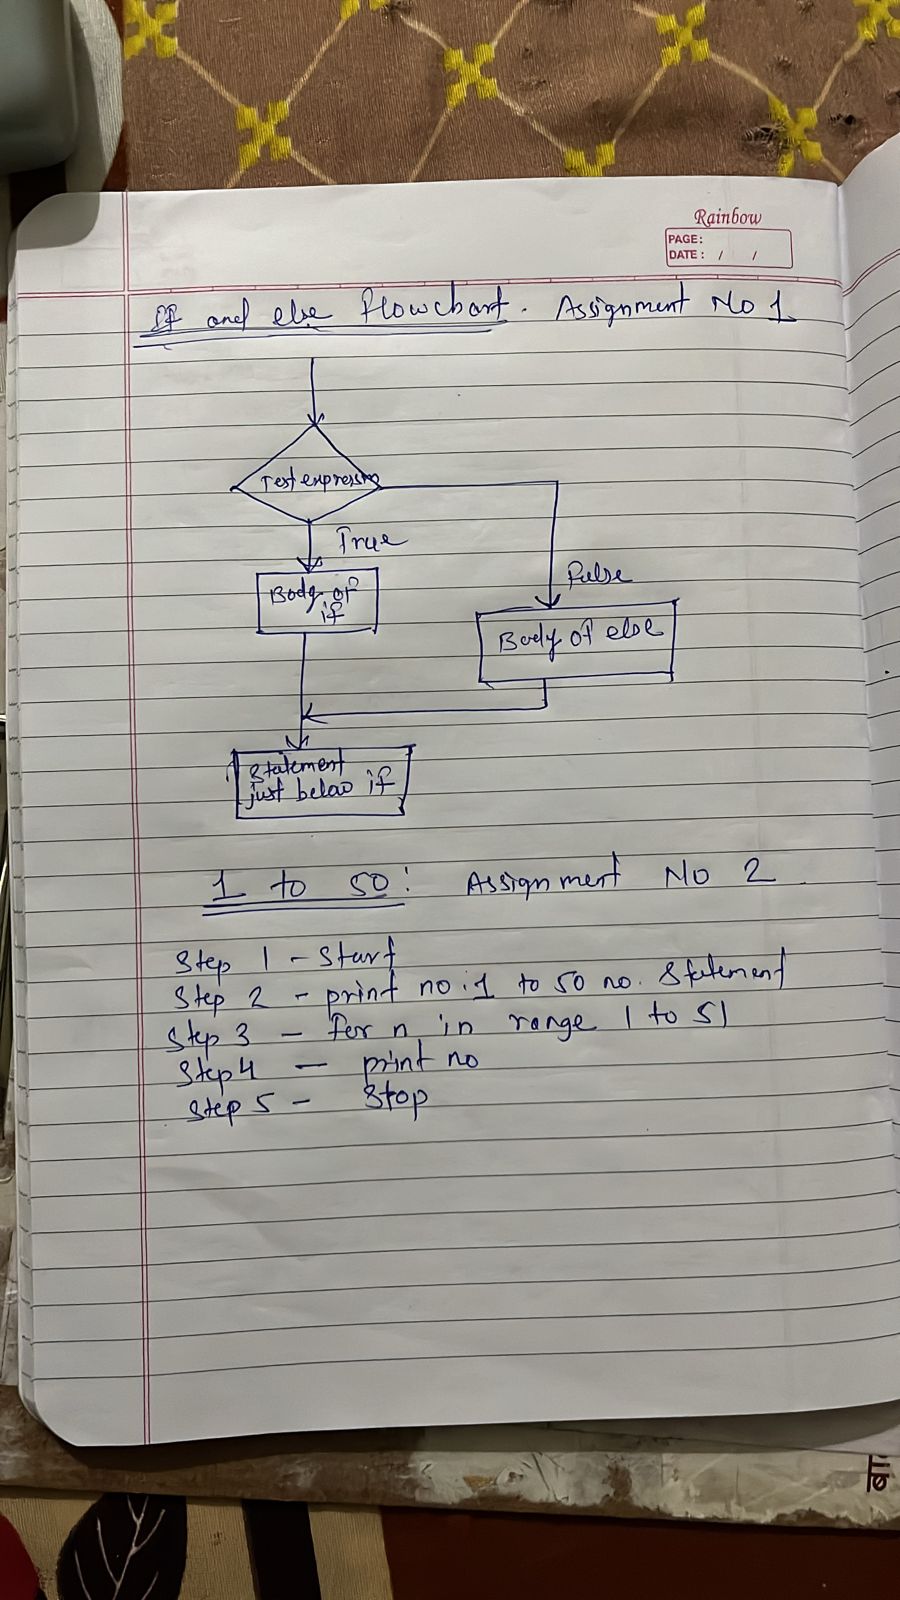 Rainbow
PAGE:
DATE: / /
If and else flowchart. Assignment No 1
Test expression
True
False
Body of
if
Body of else
Statement
just below if
1 to 50: Assignment No 2
Step 1 - Start
Step 2 - print no. 1 to 50 no. Statement
Step 3 - for n in range 1 to 51
Step 4 - print no
Step 5 - Stop